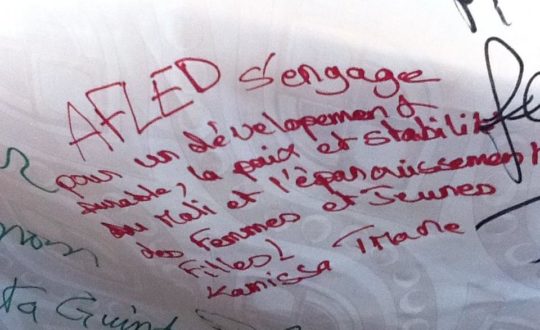 AFLED s'engage
pour un dévelopement
durable, la paix et stabilit
du Mali et l'épanouissement
des Femmes et Jeunes
Filles!
Kanissa